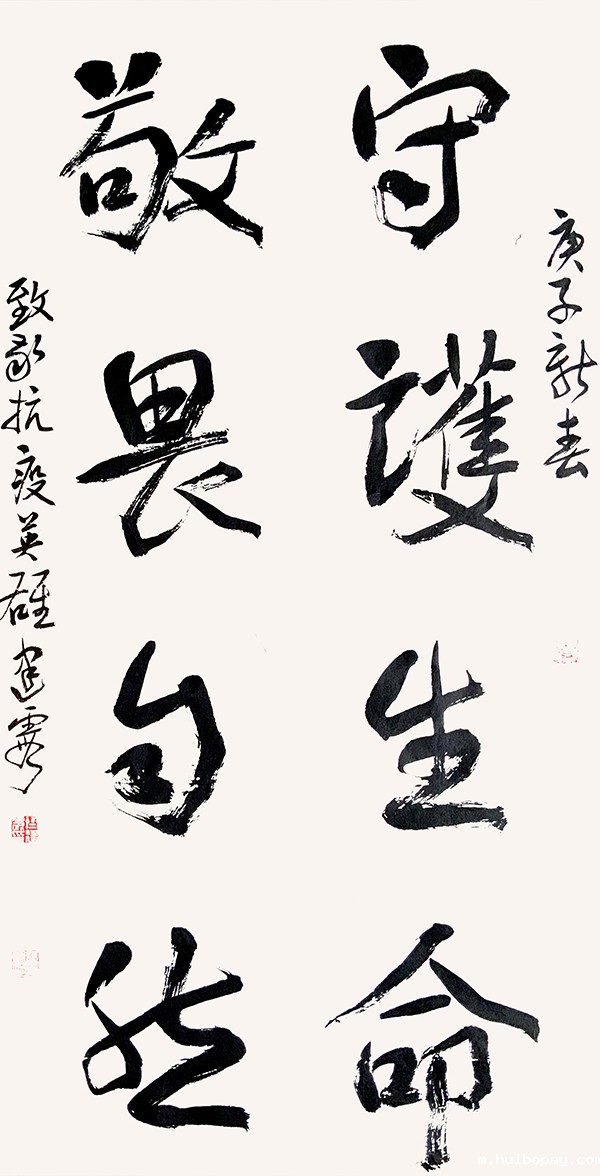 庚子新春
守護生命
敬畏自然
致敬抗疫英雄建霞
m.huibopay.com